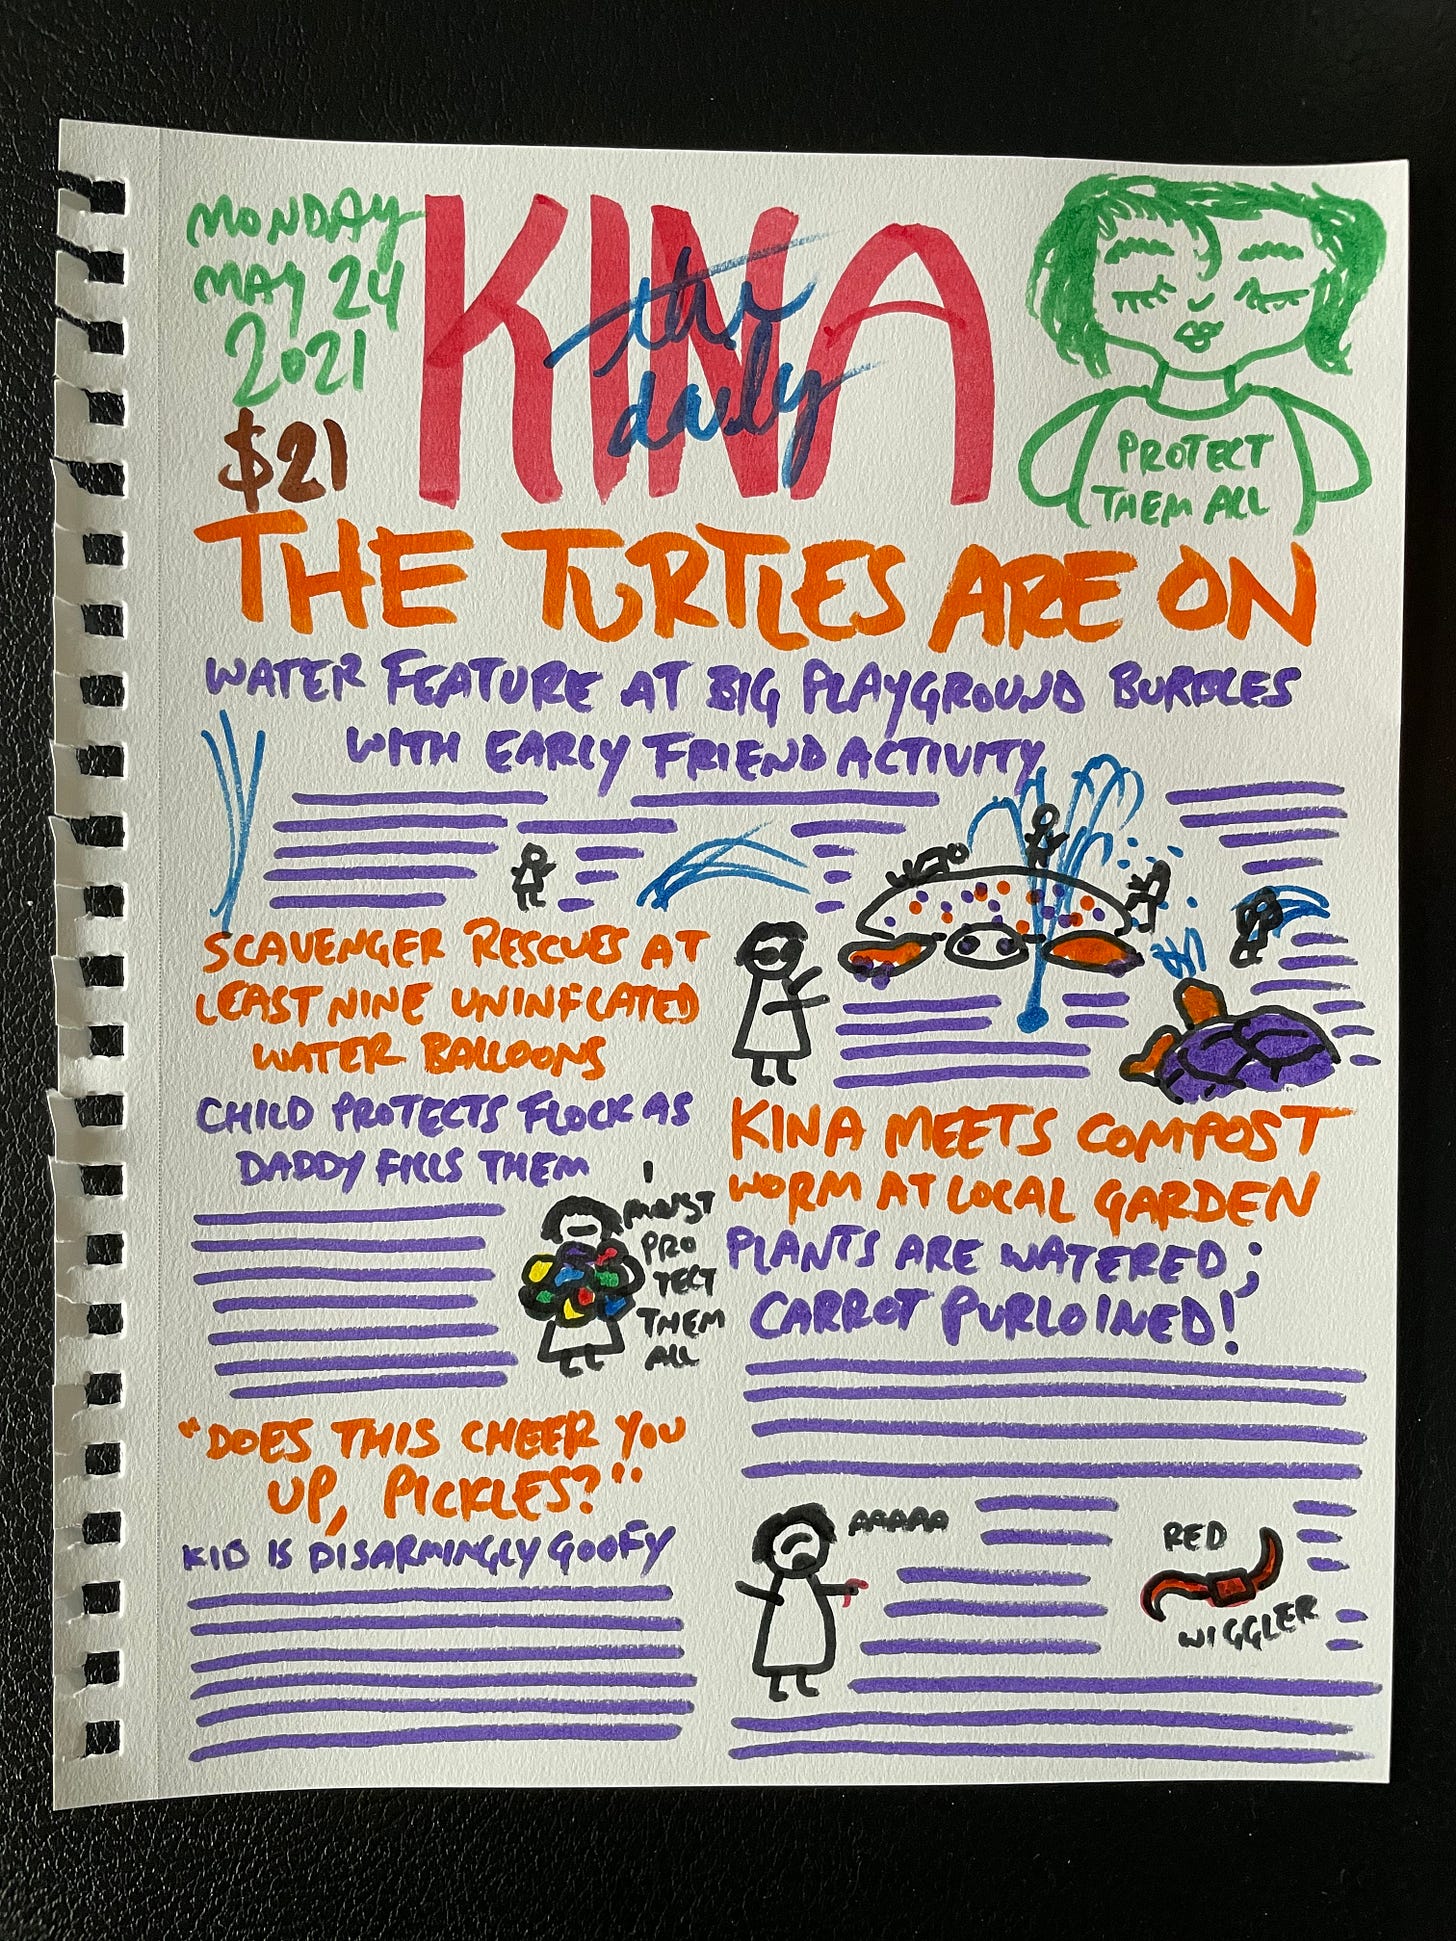 MONDAY
MAY 24
2021
$21
KINA
the
daily
PROTECT
THEM ALL
THE TURTLES ARE ON
WATER FEATURE AT BIG PLAYGROUND BURBLES
WITH EARLY FRIEND ACTIVITY
SCAVENGER RESCUES AT
LEAST NINE UNINFLATED
WATER BALLOONS
CHILD PROTECTS FLOCK AS
DADDY FILLS THEM
I
MUST
PRO
TECT
THEM
ALL
"DOES THIS CHEER YOU
UP, PICKLES?"
KID IS DISARMINGLY GOOFY
KINA MEETS COMPOST
WORM AT LOCAL GARDEN
PLANTS ARE WATERED;
CARROT PURLOINED!
AAAAA
RED
WIGGLER